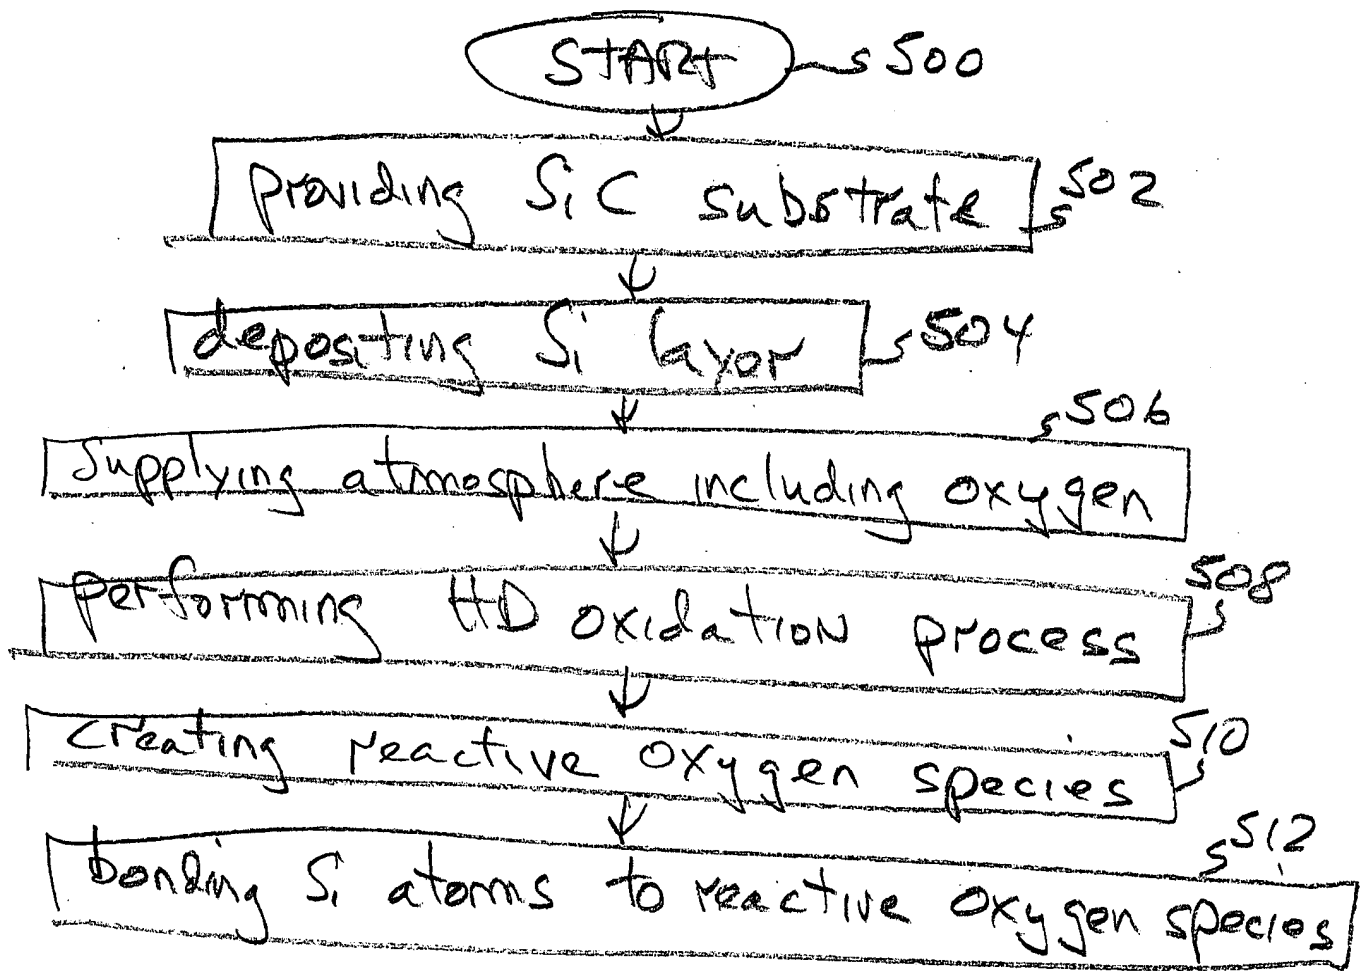 START 500
providing SiC substrate 502
depositing Si layor 504
506
Supplying atmosphere including oxygen
508
performing HD oxidation process
510
creating reactive oxygen species
512
bonding Si atoms to reactive oxygen species